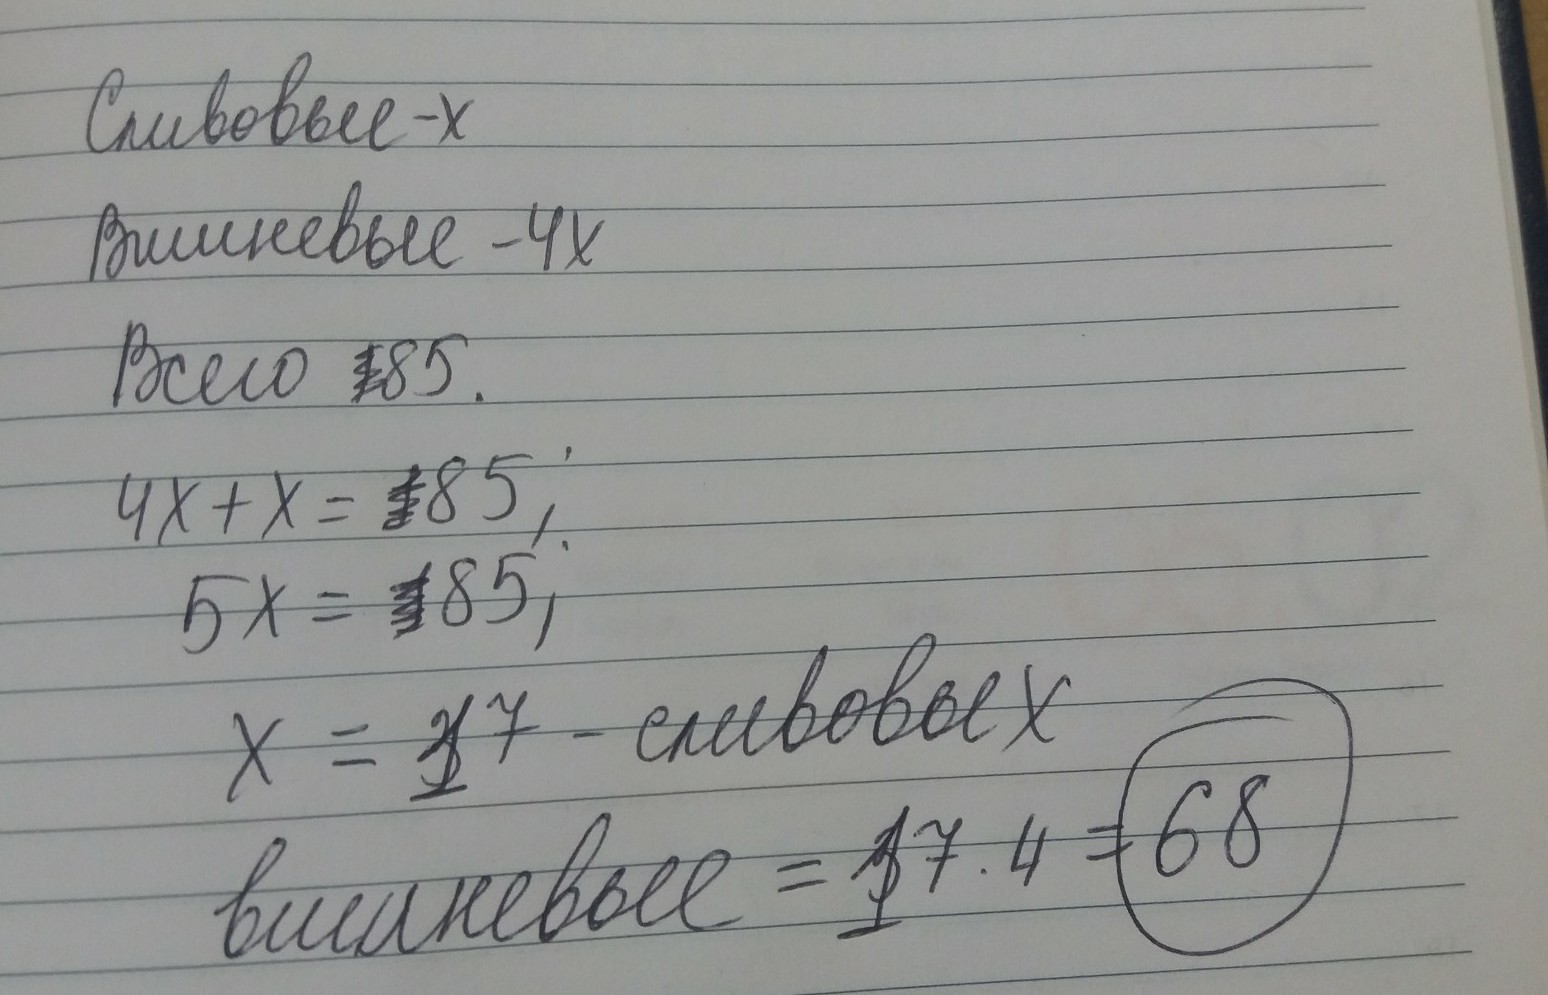 Сливовые - х
Вишневые - 4х
Всего 185.
4х + х = 185;
5х = 185;
х = 17 - сливовых
вишневые = 17 · 4 = 68